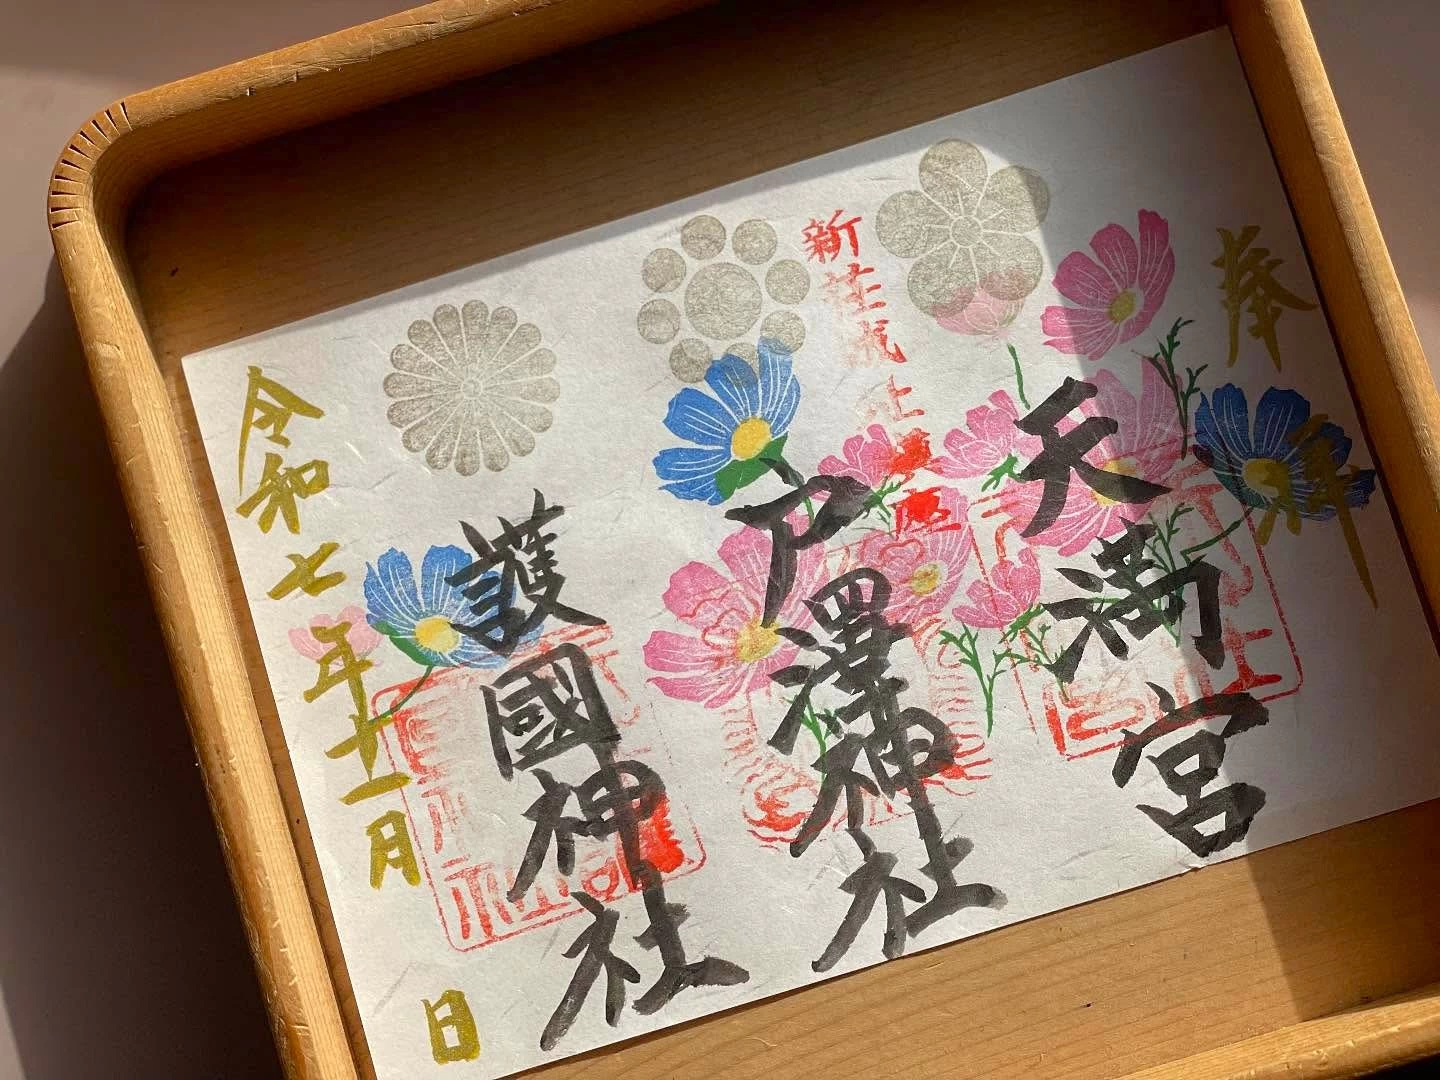 奉拝
天満宮
新庄城址鎮座
戸澤神社
護國神社
令和七年十一月 日